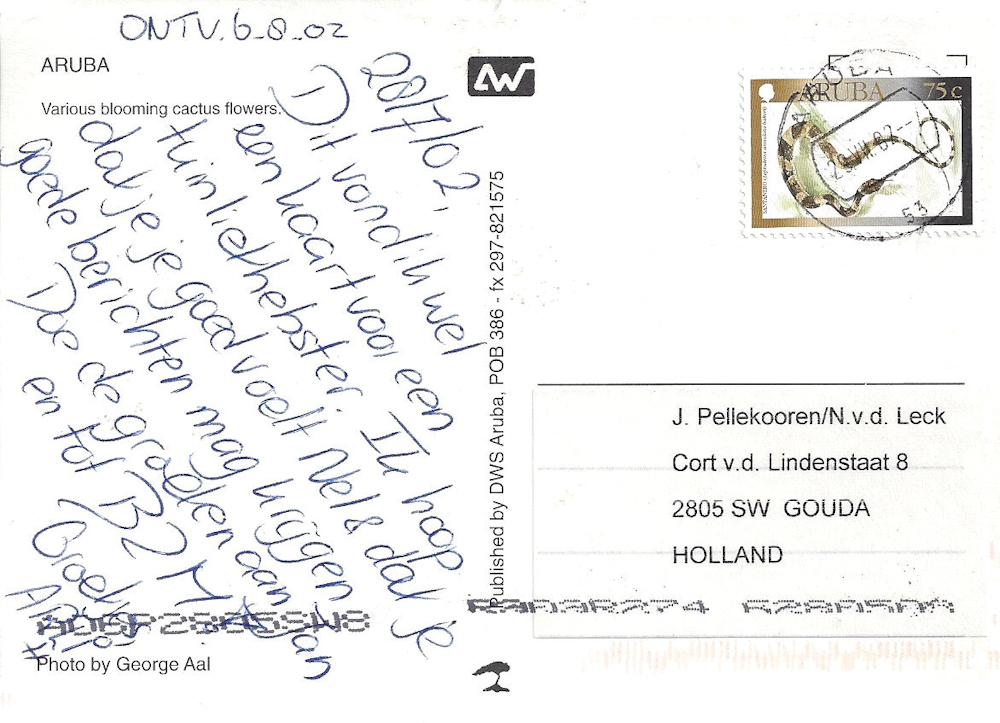 ONTV. 6-8-02
ARUBA
Various blooming cactus flowers.
28/7/02,
Dit vond ik wel
een kaart voor een
tuinliefhebster. Ik hoop
dat je je goed voelt Nel & dat je
goede berichten mag krijgen
Doe de groeten aan Jan
en tot B2M
Groetjes
Photo by George Aal
Published by DWS Aruba, POB 386 - fx 297-821575
ARUBA 75c
53
J. Pellekooren/N.v.d. Leck
Cort v.d. Lindenstaat 8
2805 SW GOUDA
HOLLAND